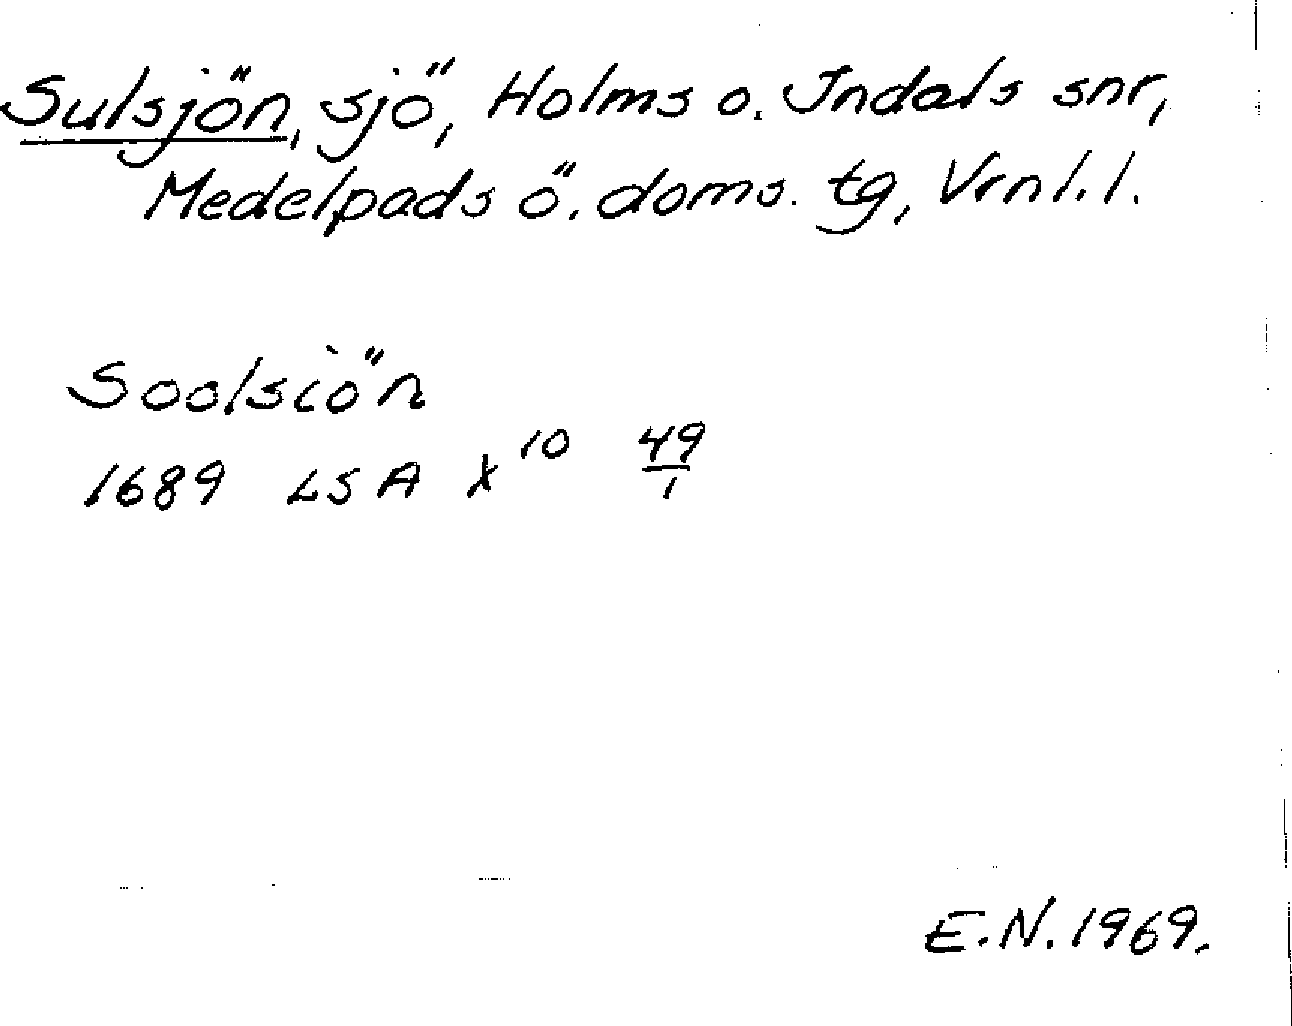 Sulsjön, sjö, Holms o. Indals snr,
Medelpads ö. doms. tg, Vrnl. l.
Soolsiön
1689 LSA X¹⁰ 49/1
E.N. 1969.